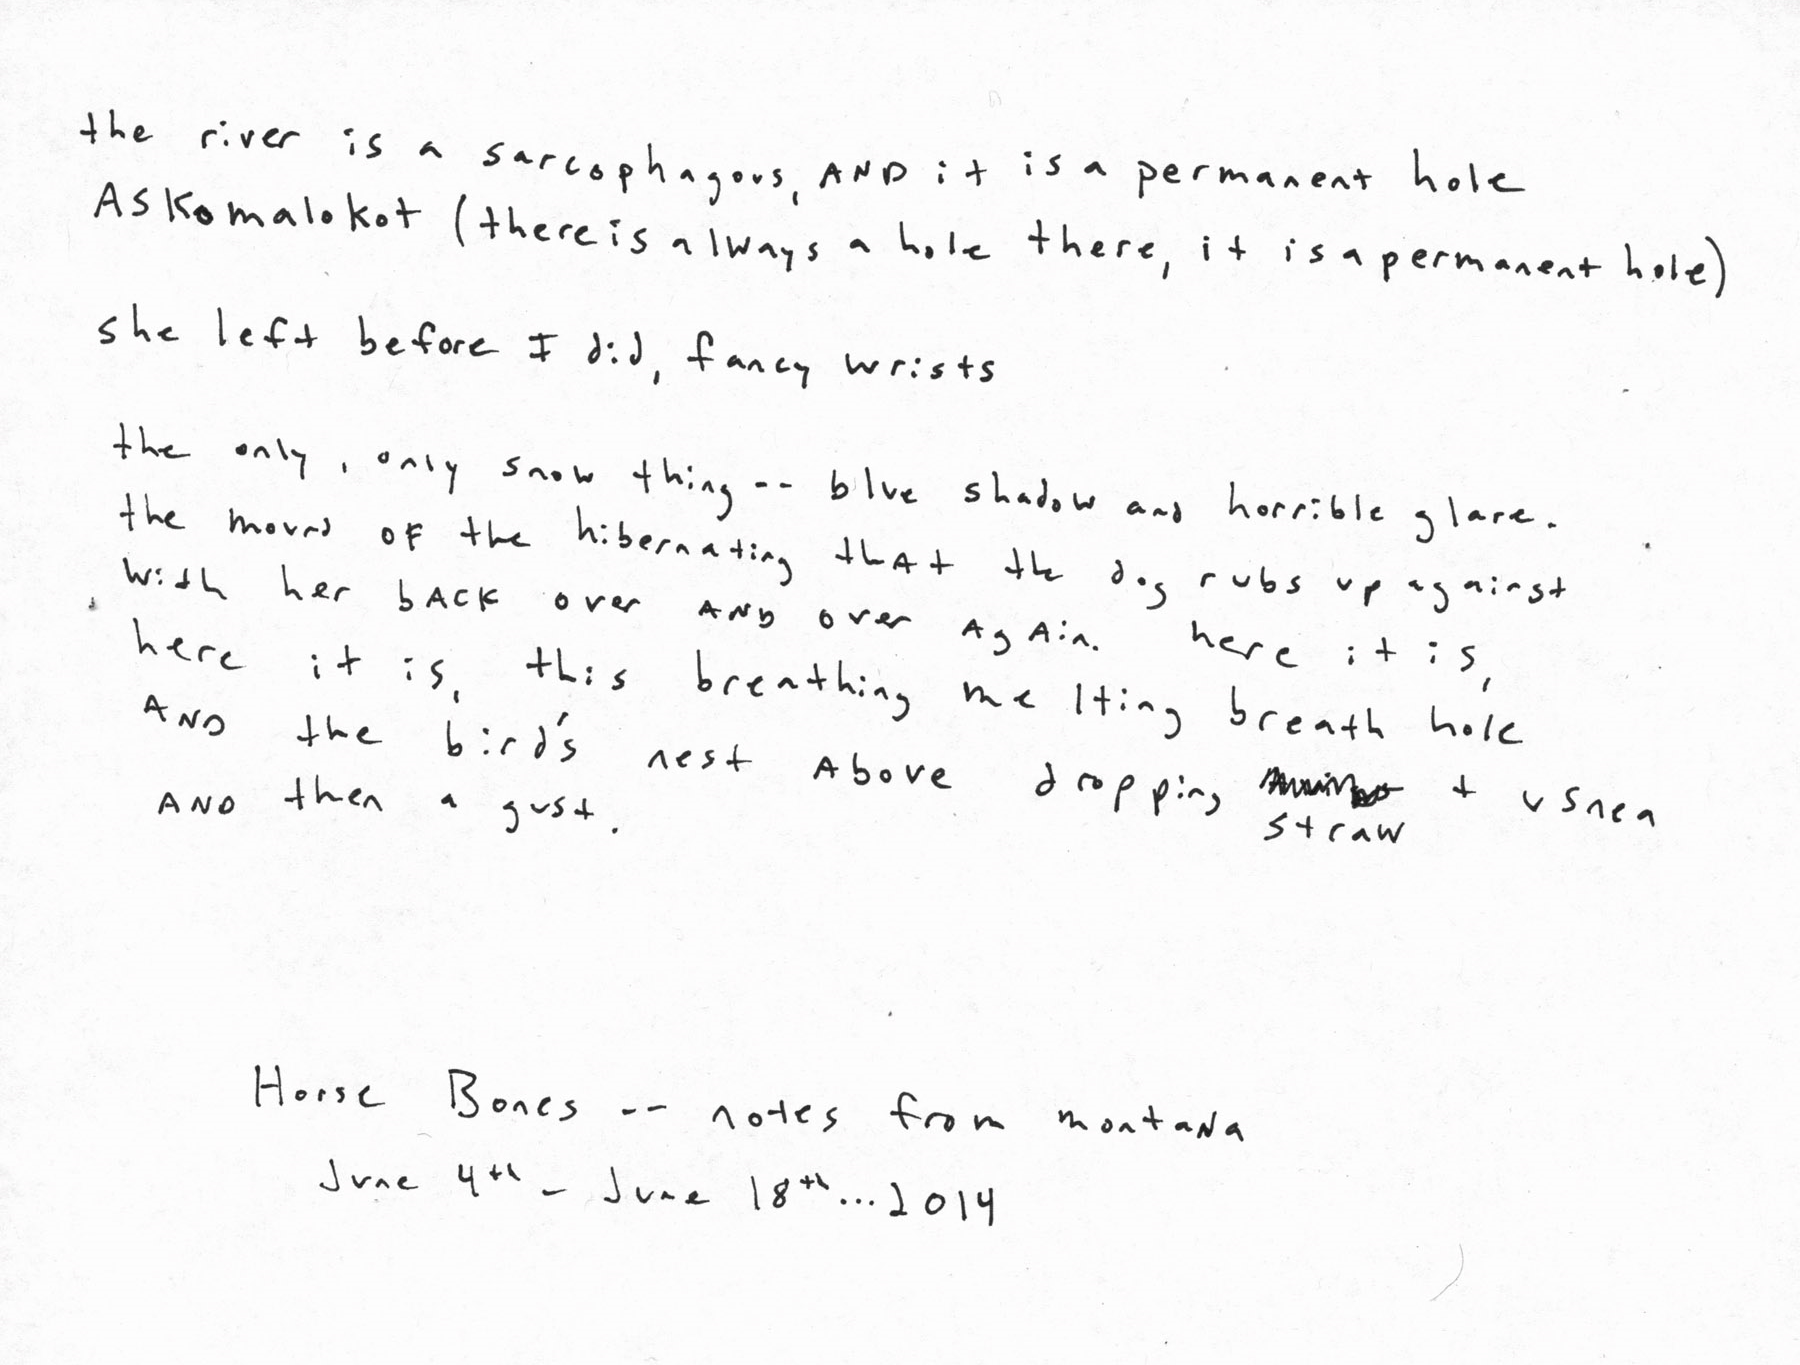 the river is a sarcophagous, AND it is a permanent hole
ASKomalokot (there is always a hole there, it is a permanent hole)
she left before I did, fancy wrists
the only, only snow thing -- blue shadow and horrible glare.
the mound OF the hibernating thAt the dog rubs up against
with her bACK over AND over AgAin. here it is,
here it is, this breathing melting breath hole
AND the bird's nest Above dropping + usnea
straw
AND then a gust.
Horse Bones -- notes from montaNa
June 4th - June 18th...2014